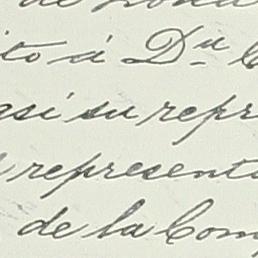 ito á Dña
asi su repr
represent
de la Com